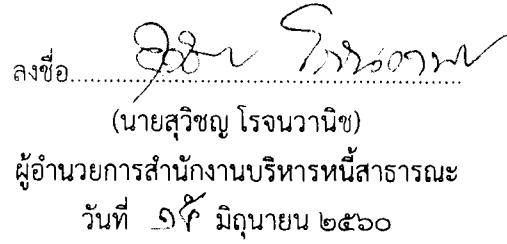 ลงชื่อ
(นายสุวิชญ โรจนวานิช)
ผู้อำนวยการสำนักงานบริหารหนี้สาธารณะ
วันที่ ๑๕ มิถุนายน ๒๕๖๐